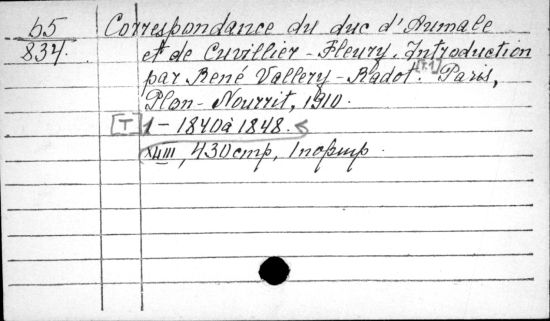 b5
834.
Correspondance du duc d'Aumale
et de Cuvillier-Fleury. Introduction
par René Vallery-Radot. [T.1] Paris,
Plon-Nourrit, 1910.
[T] 1 - 1840 à 1848.
XLIII, 430 стр., 1 портр.